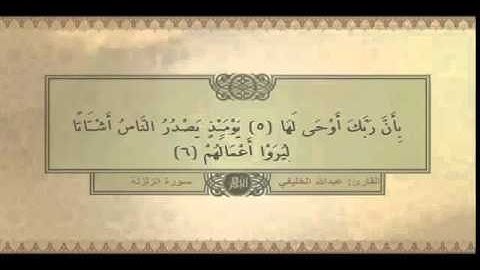 بِأَنَّ رَبَّكَ أَوْحَى لَهَا (٥) يَوْمَئِذٍ يَصْدُرُ النَّاسُ أَشْتَاتًا
لِيُرَوْا أَعْمَالَهُمْ (٦)
القارئ: عبدالله الخليفي سورة الزلزلة